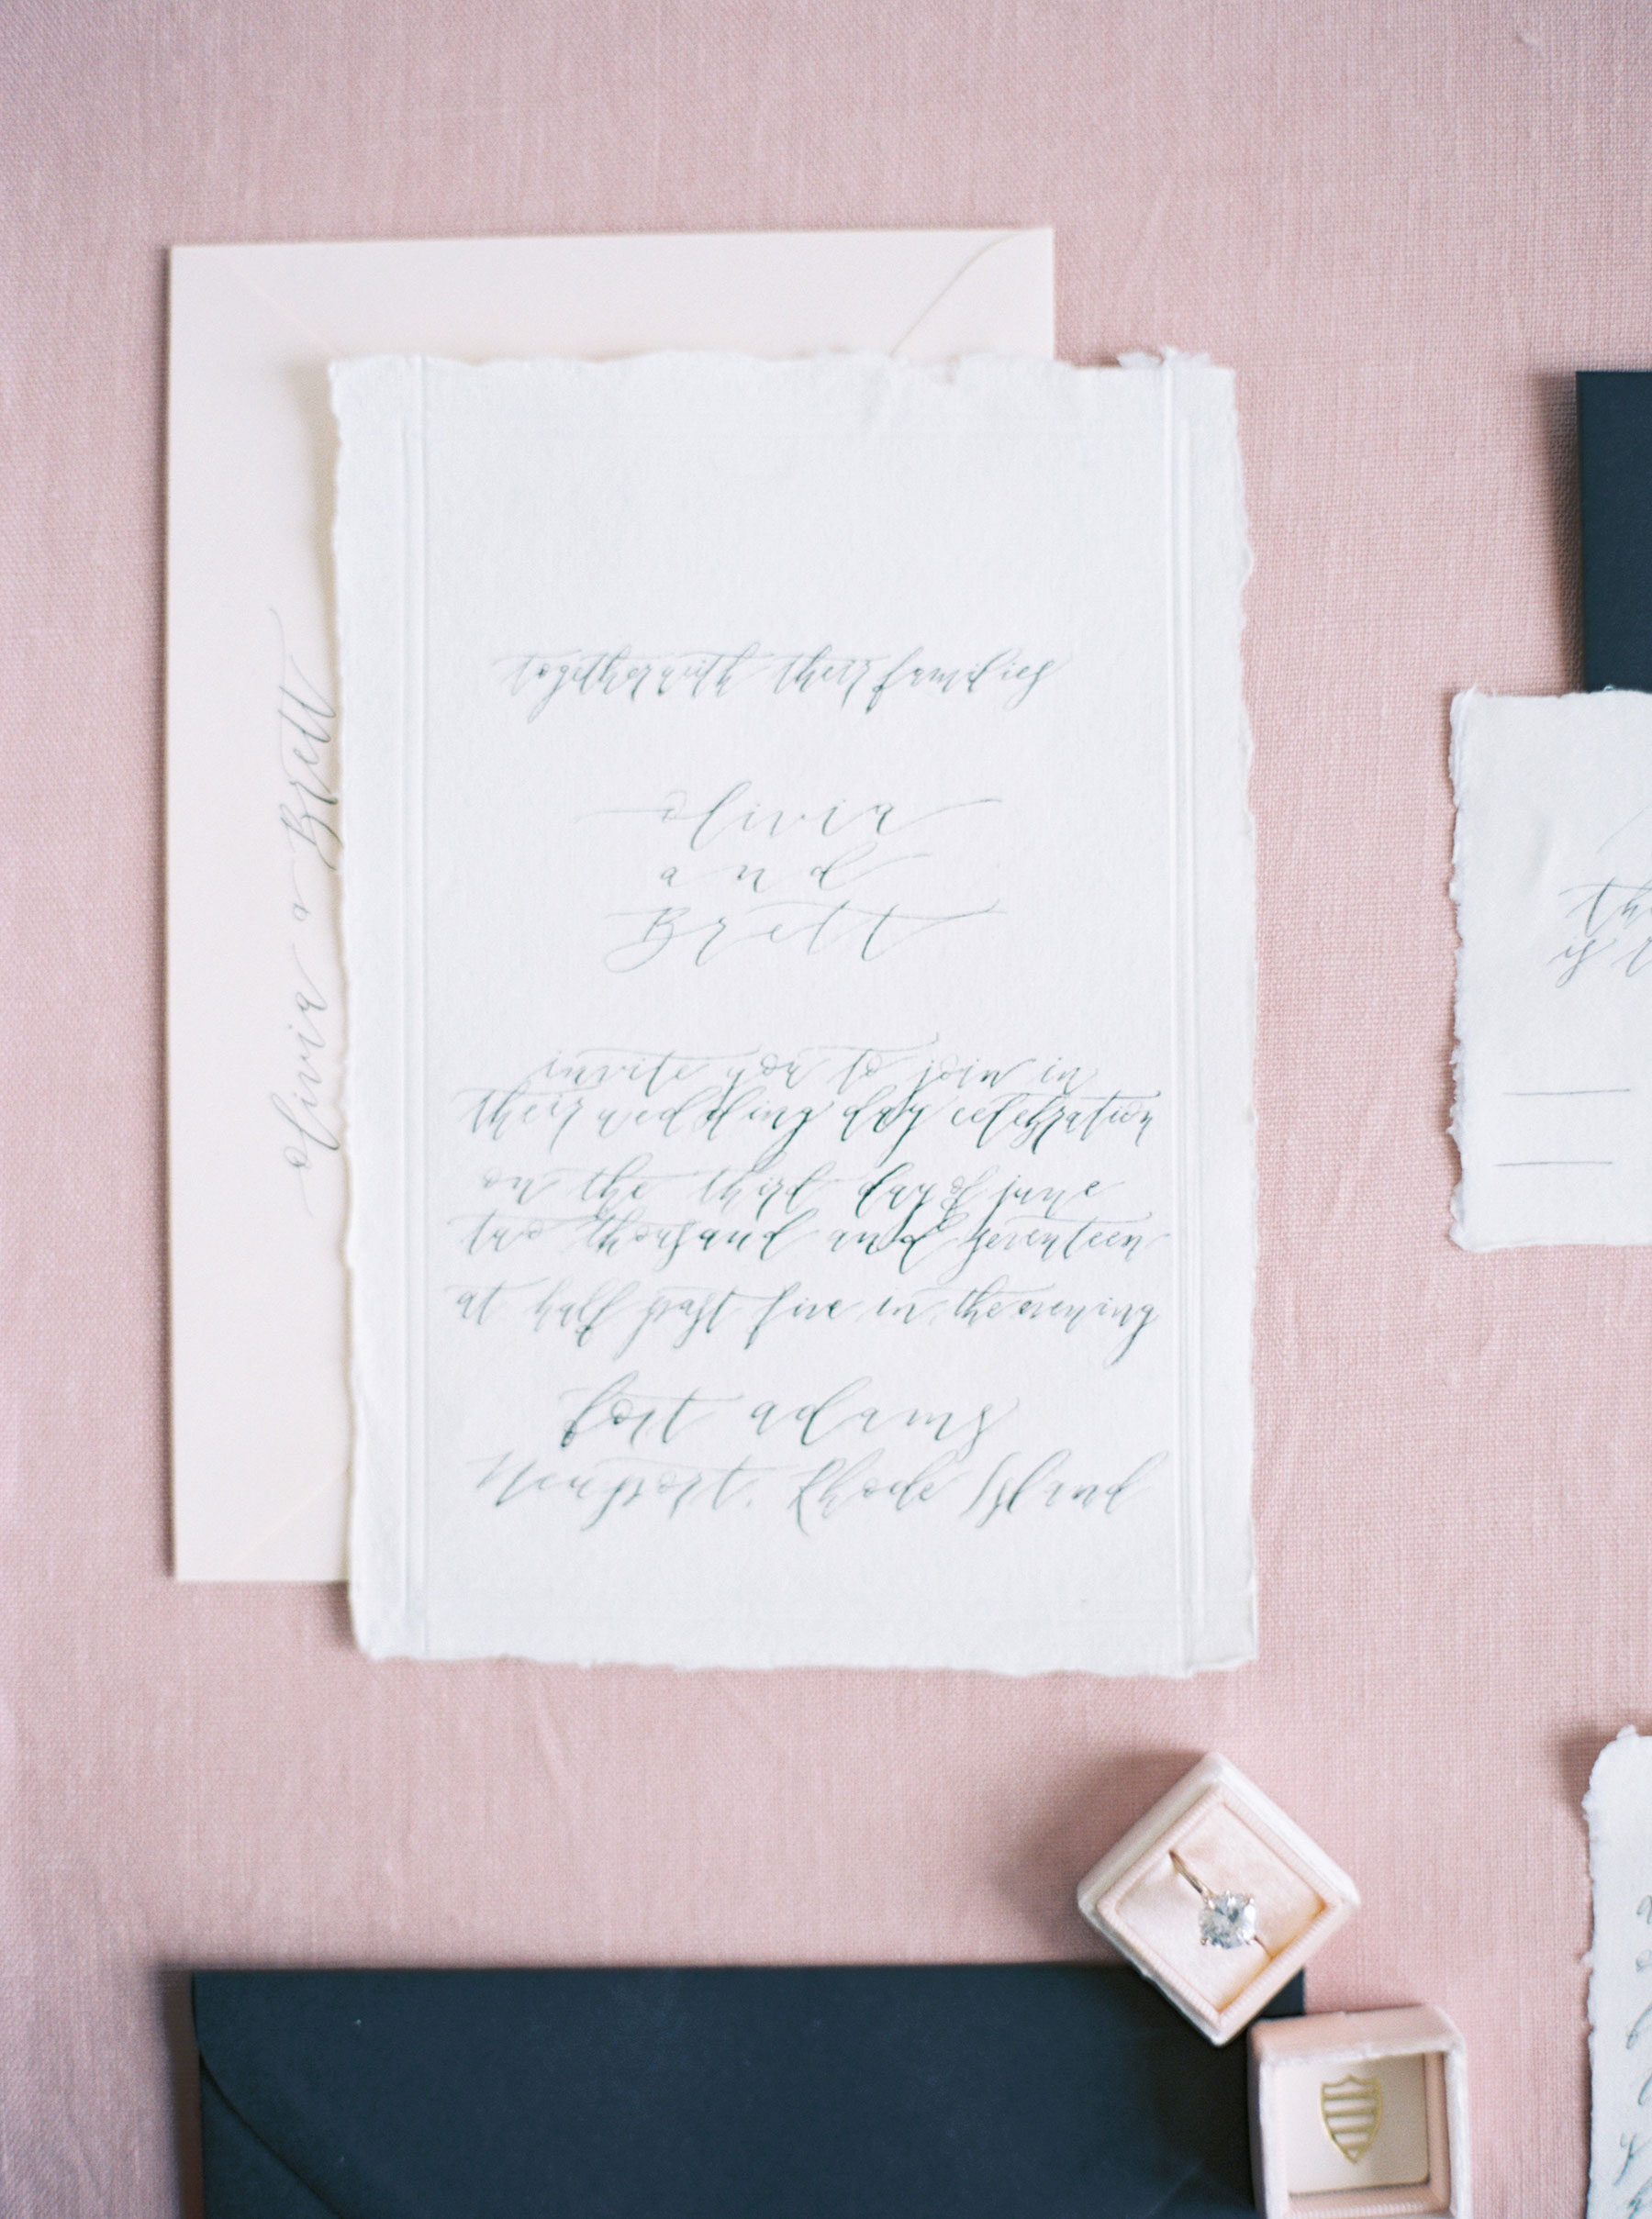 together with their families
olivia
and
Brett
invite you to join in
their wedding day celebration
on the third day of june
two thousand and seventeen
at half past five in the evening
fort adams
Newport, Rhode Island
olivia & Brett
th
is r